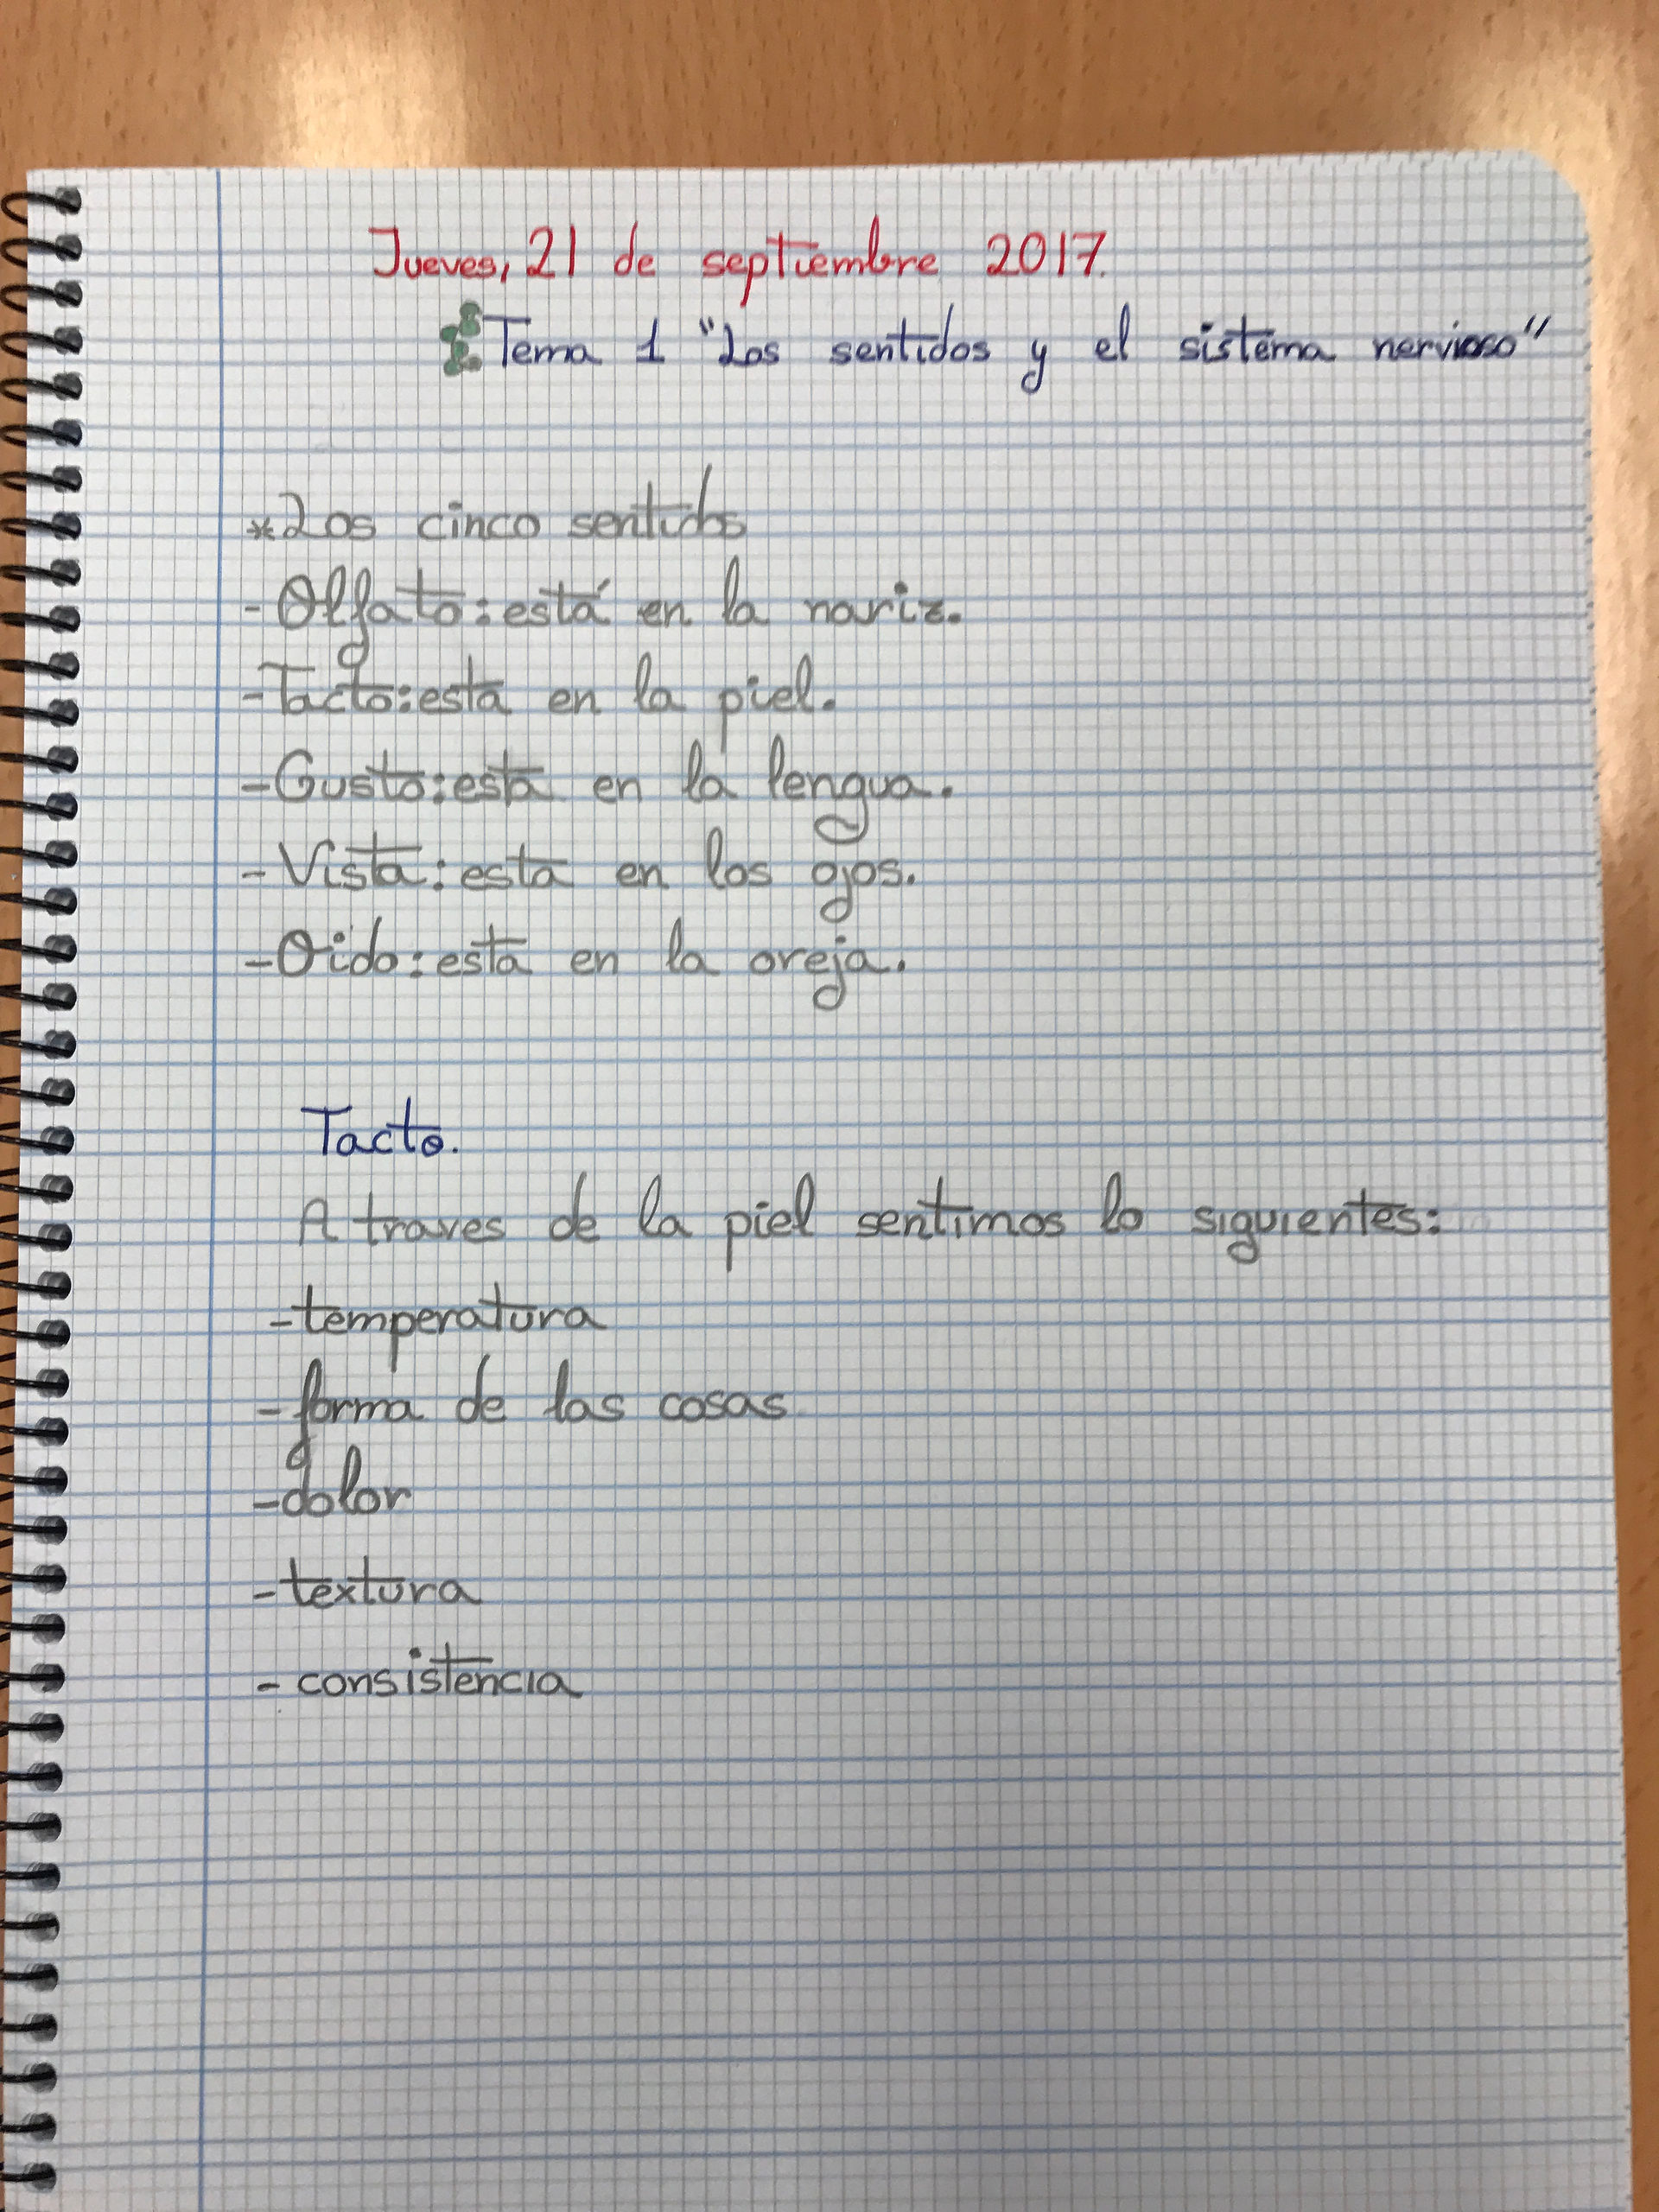 Jueves, 21 de septiembre 2017.
Tema 1 "Los sentidos y el sistema nervioso"
*Los cinco sentidos
-Olfato: está en la nariz.
-Tacto: esta en la piel.
-Gusto: esta en la lengua.
-Vista: esta en los ojos.
-Oido: esta en la oreja.
Tacto.
A traves de la piel sentimos lo siguientes:
-temperatura
-forma de las cosas
-dolor
-textura
- consistencia